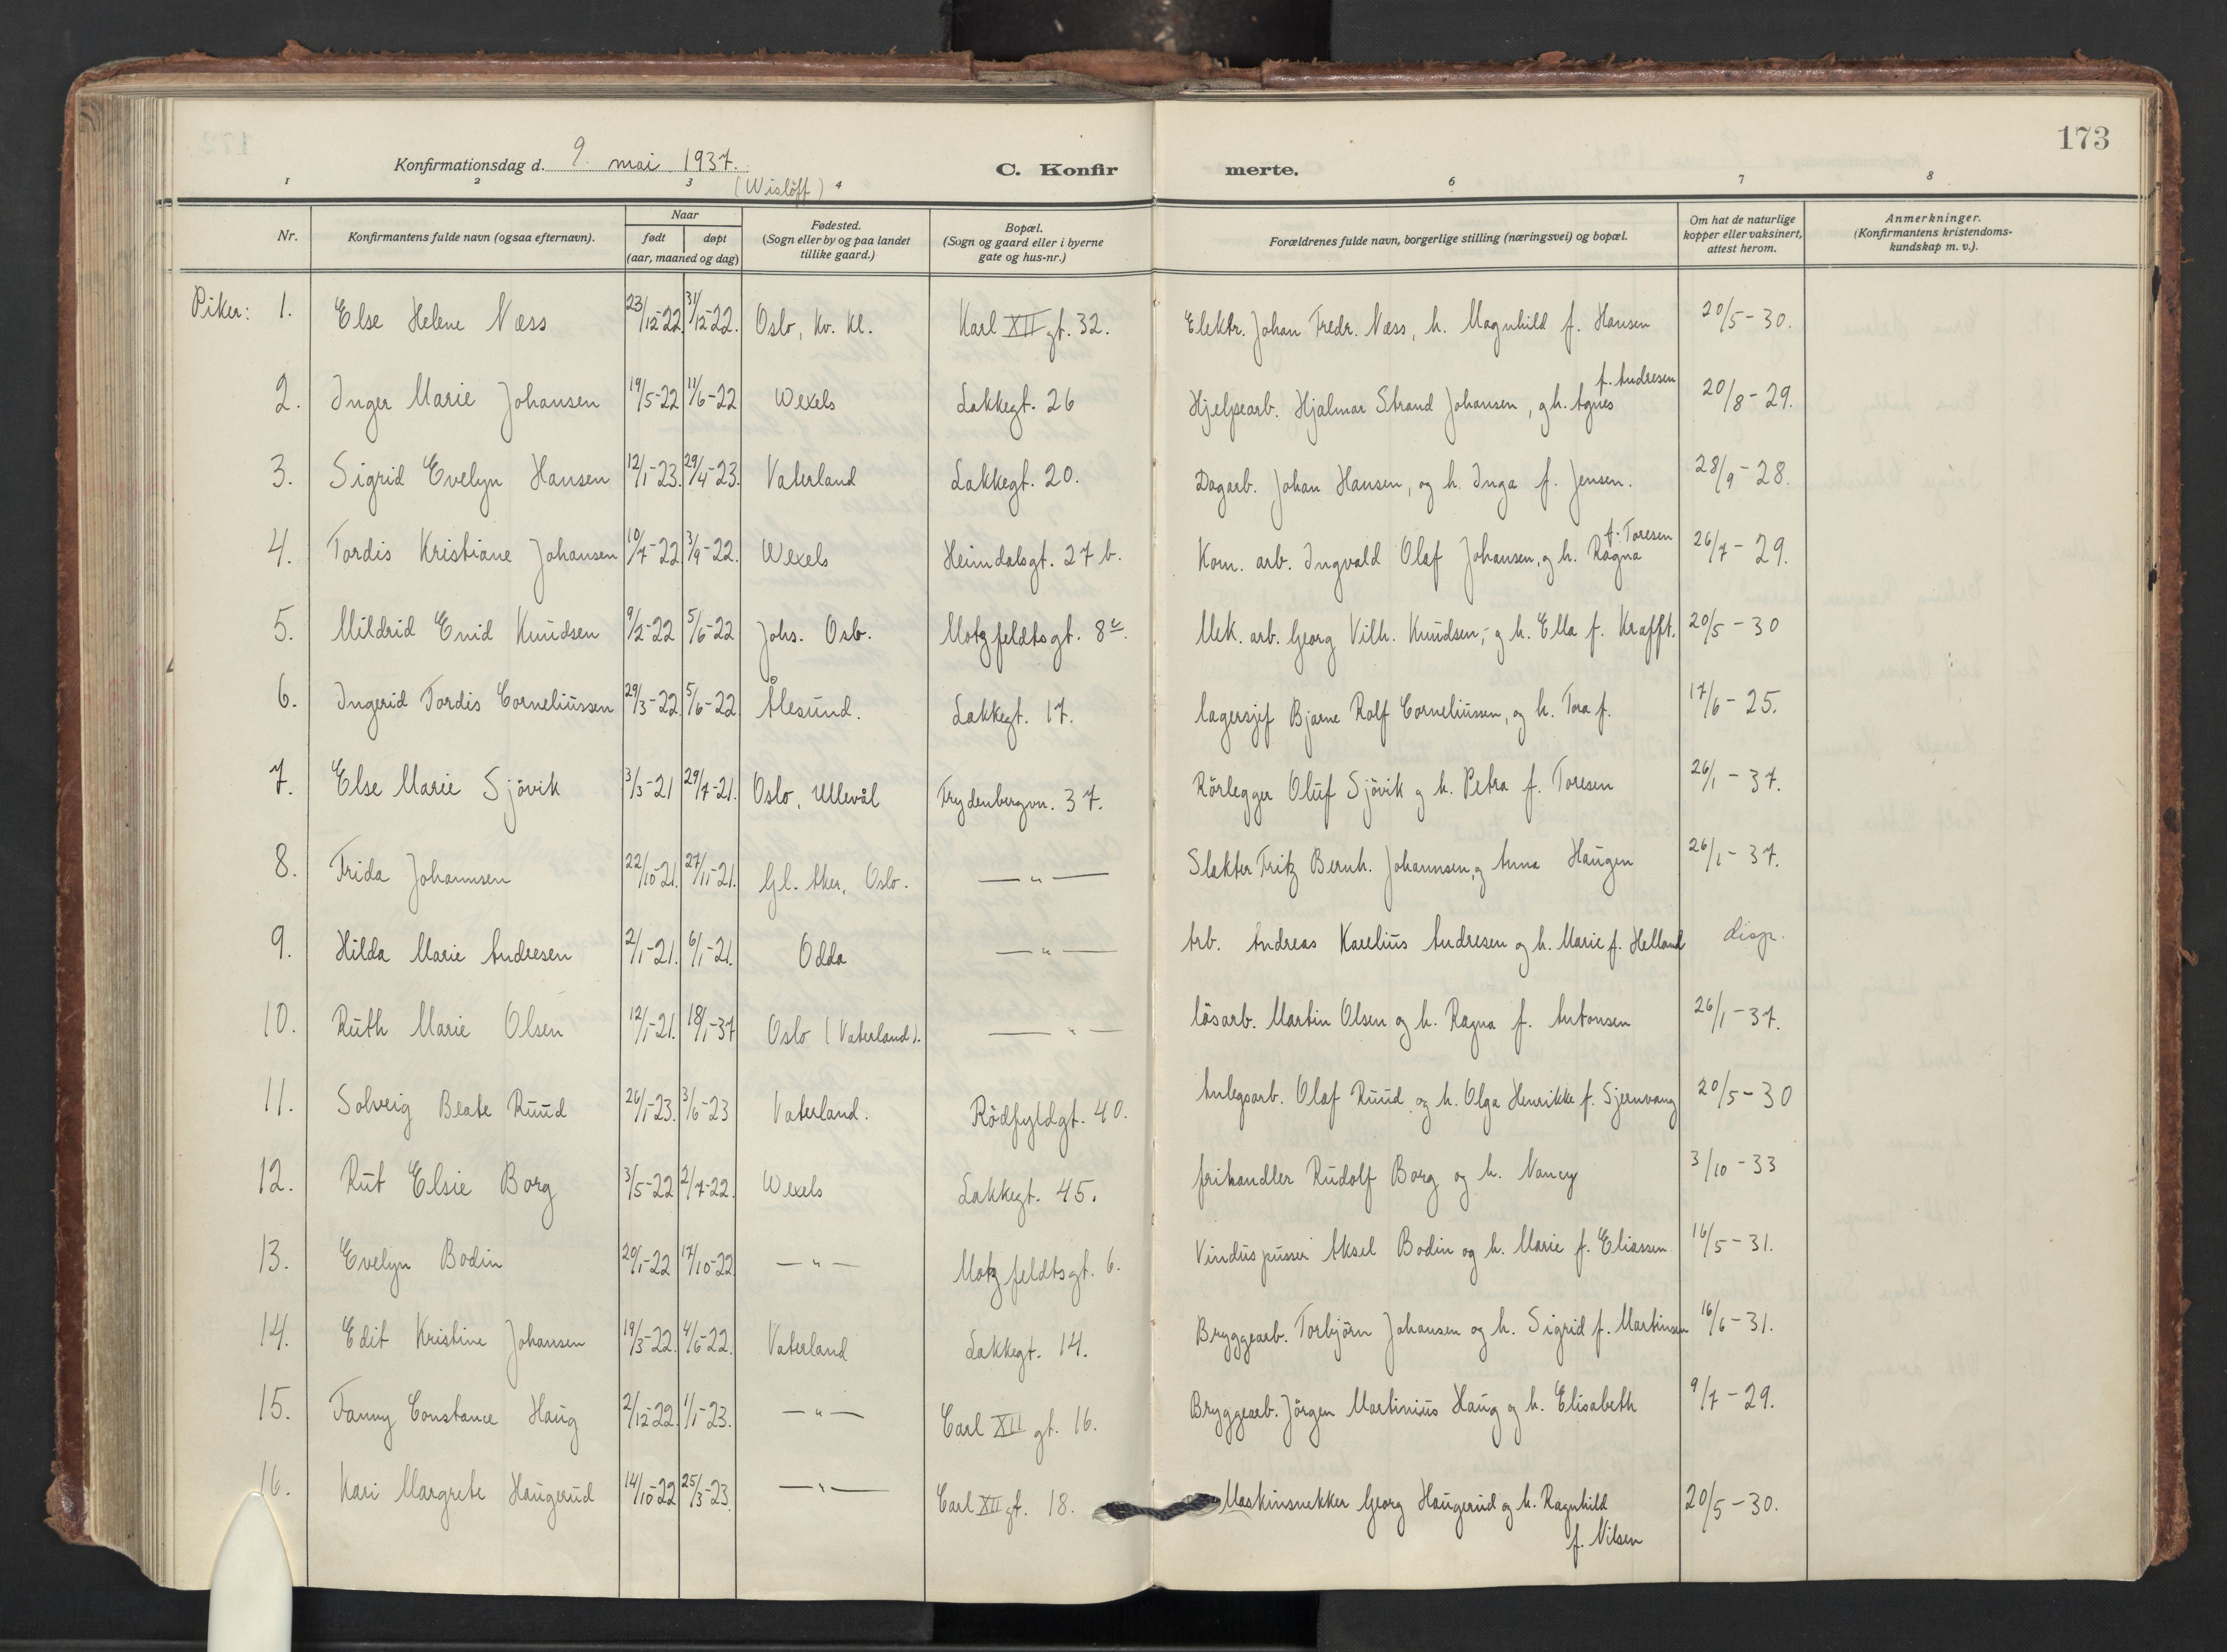 173
Konfirmationsdag d. 9. mai 1937.
(Wislöff)
C. Konfir merte.
1 2 3 4 6 7 8
Nr. Konfirmantens fulde navn (ogsaa efternavn). Naar født døpt (aar, maaned og dag) Fødested. (Sogn eller by og paa landet tillike gaard.) Bopæl. (Sogn og gaard eller i byerne gate og hus-nr.) Forældrenes fulde navn, borgerlige stilling (næringsvei) og bopæl. Om hat de naturlige kopper eller vaksinert, attest herom. Anmerkninger. (Konfirmantens kristendoms-kundskap m. v.).
Piker: 1. Else Helene Næss 23/12-22. 31/12-22. Oslo, Kv. Kl. Karl XII gt. 32. Elektr. Johan Fredr. Næss, h. Magnhild f. Hansen 20/5-30.
2. Inger Marie Johansen 19/5-22 11/6-22 Wexels Lakkegt. 26 Hjelpearb. Hjalmar Strand Johansen, og h. Agnes f. Andresen 20/8-29.
3. Sigrid Evelyn Hansen 12/1-23. 29/4-23. Vaterland Lakkegt. 20. Dagarb. Johan Hansen, og h. Inga f. Jensen. 28/9-28.
4. Tordis Kristiane Johansen 10/7-22 3/9-22. Wexels Heimdalsgt. 27 b. Kom. arb. Ingvald Olaf Johansen, og h. Ragna f. Toresen 26/7-29.
5. Mildrid Enid Knudsen 9/2-22 5/6-22 Johs. Oslo. Motzfeldtsgt. 8 Mek. arb. Georg Vilh. Knudsen, og h. Ella f. Krafft. 20/5-30
6. Ingerid Tordis Corneliussen 29/3-22. 5/6-22 Ålesund. Lakkegt. 17. lagersjef Bjarne Rolf Corneliussen, og h. Tora f. 17/6-25.
7. Else Marie Sjövik 3/3-21 29/7-21. Oslo, Ullevål Frydenbergvn. 37. Rörlegger Oluf Sjövik og h. Petra f. Toresen 26/1-37.
8. Frida Johannsen 22/10-21. 27/11-21. Gl. Aker, Oslo. —"— Slakter Fritz Bernh. Johannsen, og Anna Haugen 26/1-37.
9. Hilda Marie Andresen 2/1-21. 6/1-21. Odda —"— Arb. Andreas Karelius Andresen og h. Marie f. Helland disp.
10. Ruth Marie Olsen 12/1-21. 18/1-37 Oslo (Vaterland). —"— lösarb. Martin Olsen og h. Ragna f. Antonsen 26/1-37.
11. Solveig Beate Ruud 26/1-23. 3/6-23 Vaterland. Rödfyldgt. 40. Anlegsarb. Olaf Ruud og h. Olga Henrikke f. Sjernvang 20/5-30
12. Rut Elsie Borg 3/5-22 2/7-22. Wexels Lakkegt. 45. frihandler Rudolf Borg og h. Nancy 3/10-33
13. Evelyn Bodin 20/1-22 17/10-22 —"— Motzfeldtsgt. 6. Vinduspusser Aksel Bodin og h. Marie f. Eliassen 16/5-31.
14. Edit Kristine Johansen 19/3-22. 4/6-22. Vaterland Lakkegt. 14. Bryggearb. Torbjörn Johansen og h. Sigrid f. Martinsen 16/6-31.
15. Fanny Constance Haug 2/12-22. 1/1-23. —"— Carl XII gt. 16. Bryggearb. Jörgen Martinius Haug og h. Elisabeth 9/7-29.
16. Kari Margrete Haugerud 14/10-22 25/3-23. —"— Carl XII gt. 18. Maskinsnekker Georg Haugerud og h. Ragnhild 20/5-30.
f. Nilsen